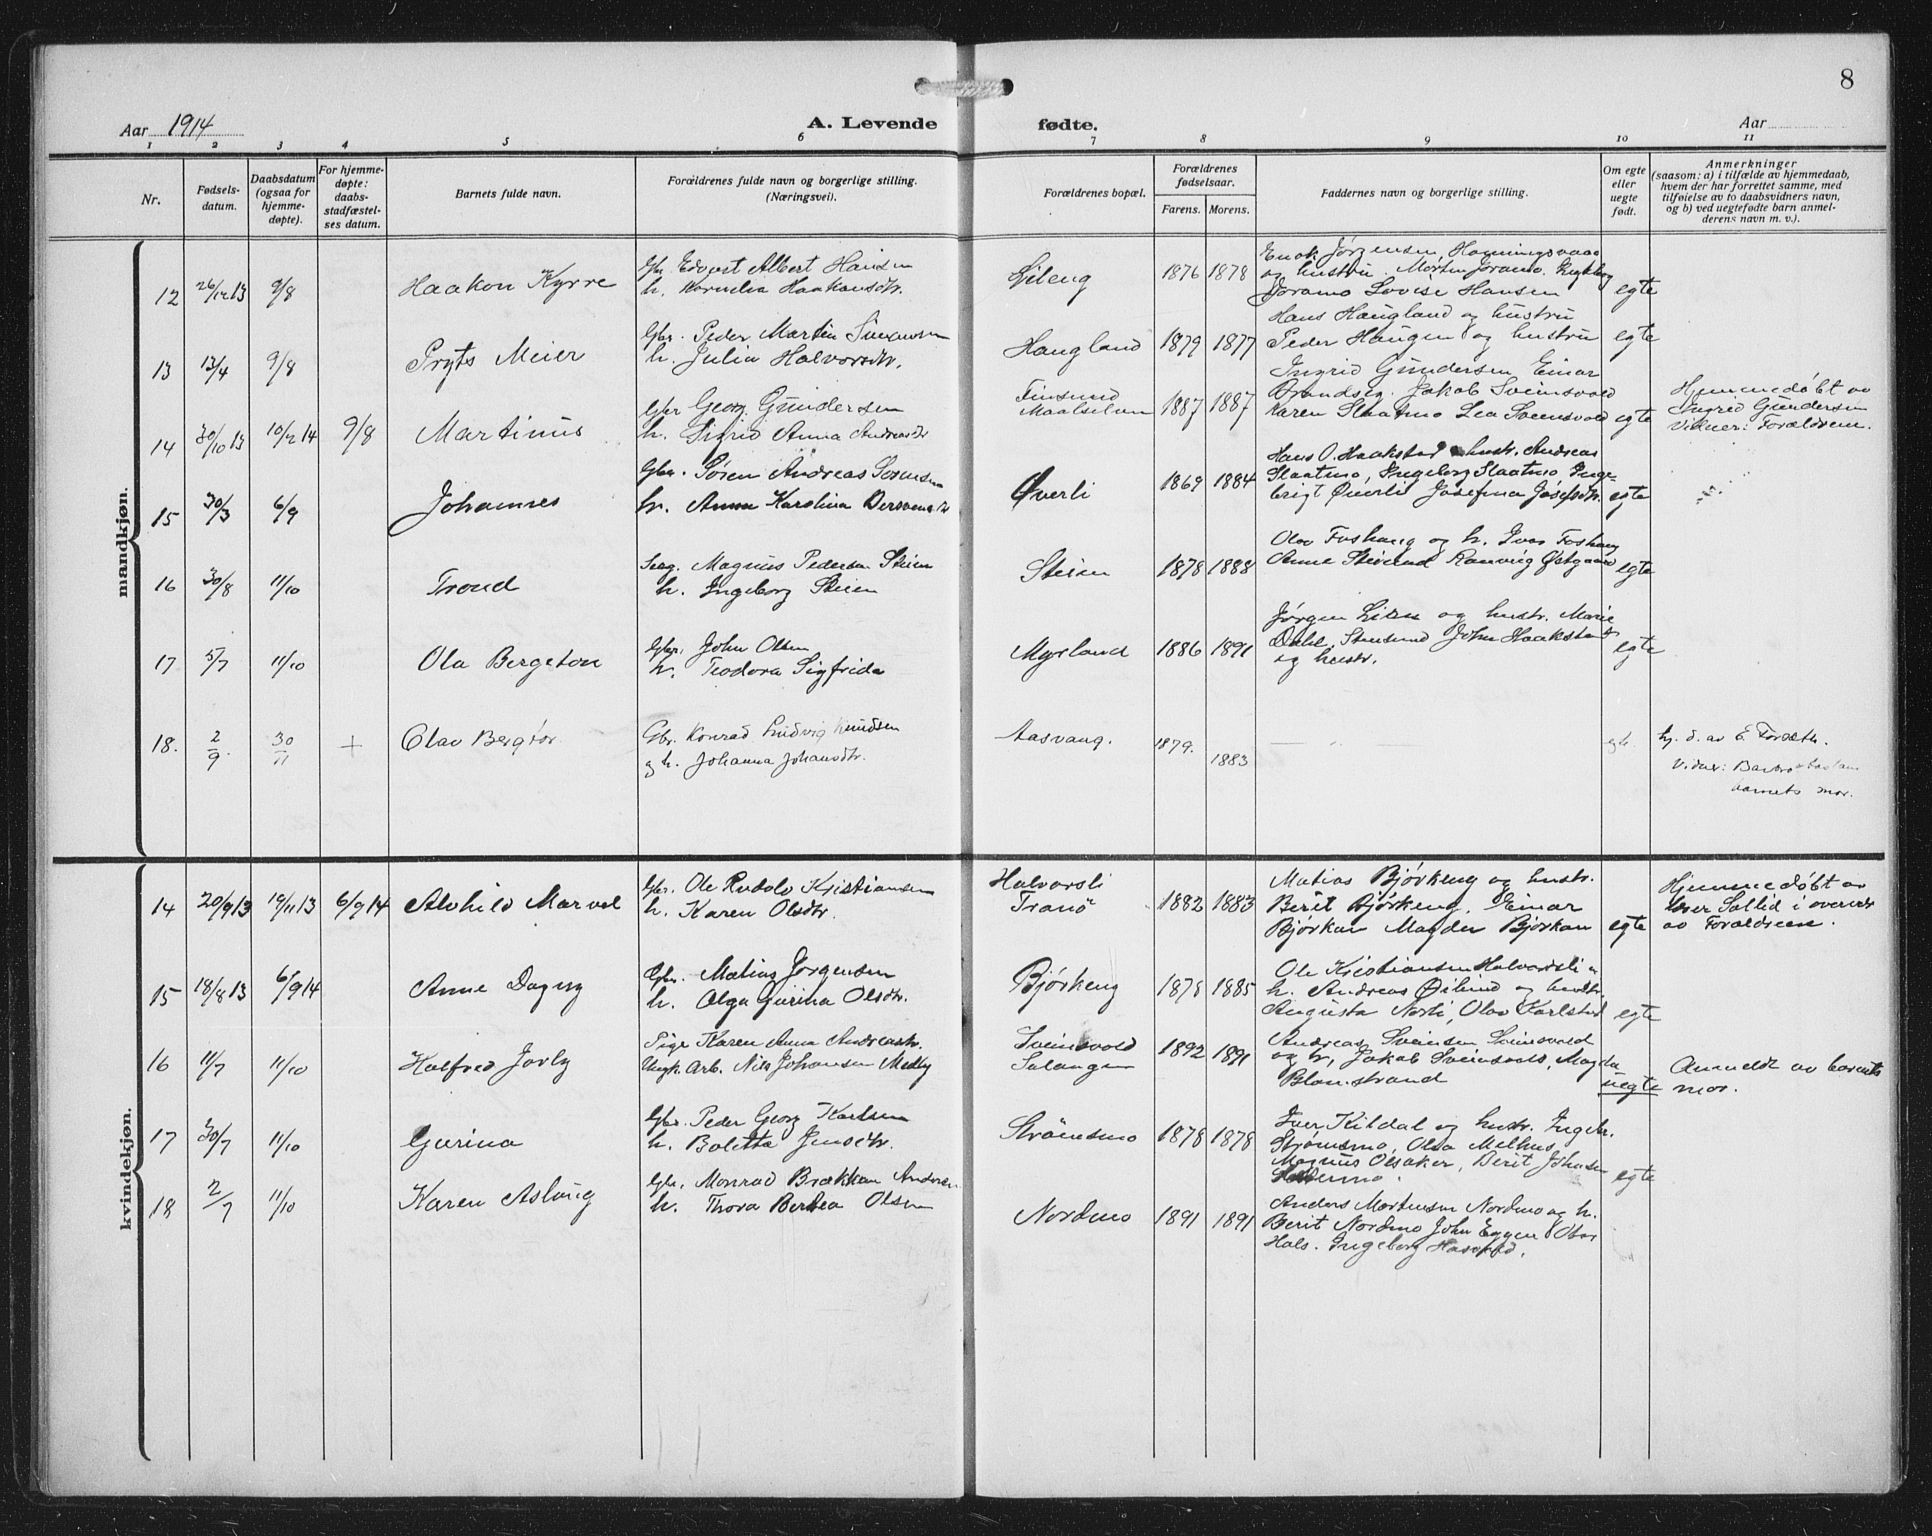 8
Aar 1914
A. Levende fødte.
Aar
1 2 3 4 5 6 7 8 9 10 11
Nr.
Fødsels-
datum.
Daabsdatum
(ogsaa for
hjemme-
døpte).
For hjemme-
døpte:
daabs-
stadfæstel-
ses datum.
Barnets fulde navn.
Forældrenes fulde navn og borgerlige stilling.
(Næringsvei).
Forældrenes bopæl.
Forældrenes
fødselsaar.
Farens. Morens.
Faddernes navn og borgerlige stilling.
Om egte
eller
uegte
født.
Anmerkninger
(saasom: a) i tilfælde av hjemmedaab,
hvem der har forrettet samme, med
tilføielse av to daabsvidners navn,
og b) ved uegtefødte barn anmel-
derens navn m. v.).
mandkjøn.
12 26/12 13 9/8 Haakon Kyrre
Gbr. Edvart Albert Hansen
h. Kornelia Haakansdtr.
Lileng 1876 1878
Enok Jørgensen, Honningsvaag
og hustru. Morten Joramo.
Joramo Lovise Hansen
egte
13 13/4 9/8 Pryts Meier
Gbr. Peder Martin Simonsen
h. Julia Halvorsdtr.
Haugland 1879 1877
Hans Haugland og hustru
Peder Haugen og hustru
egte
14 30/10 13 10/2 14 9/8 Martinus
Gbr Georg Gundersen
h. Sigrid Anna Andreasdtr
Finsund
Maalselven 1887 1887
Ingrid Gundersen Einar
Brandseg. Jakob Sveinsvold
Karen Slaatmo Lea Sveinsvold
egte
Hjemmedøbt av
Ingrid Gundersen
Vidner: Forældrene.
15 30/3 6/9 Johannes
Gbr. Søren Andreas Sørensen
h. Anna Karolina
Øverli 1869 1884
Hans O. Haakstad hustr. Andreas
Slaatmo, Ingeborg Slaatmo Inge-
brigt Øverli Josefina Josefsdtr.
egte
16 30/8 11/10 Trond
Magnus Pedersen Steien
h. Ingeborg Steien
Steien 1878 1888
Olav Foshaug og h. Ivar Foshaug
Anne Steiena Ranveig Østgaard
egte
17 5/7 11/10 Ola Bergeton
Gbr. John Olsen
h. Teodora Sigfrida
Myrland 1886 1891
Jørgen Lien og hustr. Marie
Dahl, Stensund John Haakstad
og hustr.
egte
18. 2/9. 30/11 + Olav Bergtor
Gbr. Konrad Ludvig Knudsen
og h. Johanna Johansdtr.
Aasvang. 1879. 1883
— —
egte
hj. d. av E. Forseth.
Vidner: Barbro
barnets mor.
kvindekjøn.
14 20/9 13 19/11 13 6/9 14 Alvhild Marvel
Gbr. Ole Rudolv Kristiansen
h. Karen Olsdtr.
Halvorsli
Tranö 1882 1883
Matias Bjørkeng og hustr.
Berit Bjørkeng, Einar
Bjørkan Magder Bjørkan
egte
Hjemmedøbt av
Iver Sollid i overvær
av Forældrene.
15 18/8 13 6/9 14 Anne Dagny
Gbr. Matias Jørgensen
h. Olga Gurina Olsdtr.
Bjørkeng 1878 1885
Ole Kristiansen Halvorsli
h. Andreas Øilund og hustr.
Augusta Norli, Olav Karlstad
egte
16 11/7 11/10 Halfred Jovly
Pige Karen Anna Andreasdtr.
Ungk. Arb. Nils Johansen Medby
Sveinsvold
Salangen 1892 1891
Andreas Sveinsen Sveinsvold
og h, Jakob Sveinsvold, Magda
Blomstrand
uegte
Anmeldt av barnets
mor.
17 30/7 11/10 Gurina
Gbr. Peder Georg Karlsen
h. Boletta Jensdtr.
Strömsmo 1878 1878
Iver Kildal og hustr. Ingebr.
Strømsmo, Olsa Melhus,
Magnus Olsaker, Berit Johnsen
egte
18 2/7 11/10 Karen Aslaug
Gbr. Monrad Brækkan Andersen
h. Thora Bertea Olsen
Nordmo 1891 1891
Anders Mortensen Nordmo og h.
Berit Nordmo John Eggen
Hals. Ingeborg